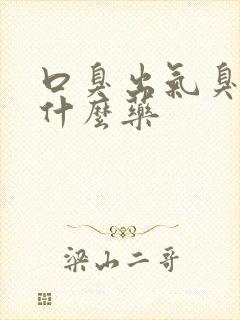 口臭出氣臭
什麼藥
梁山二哥